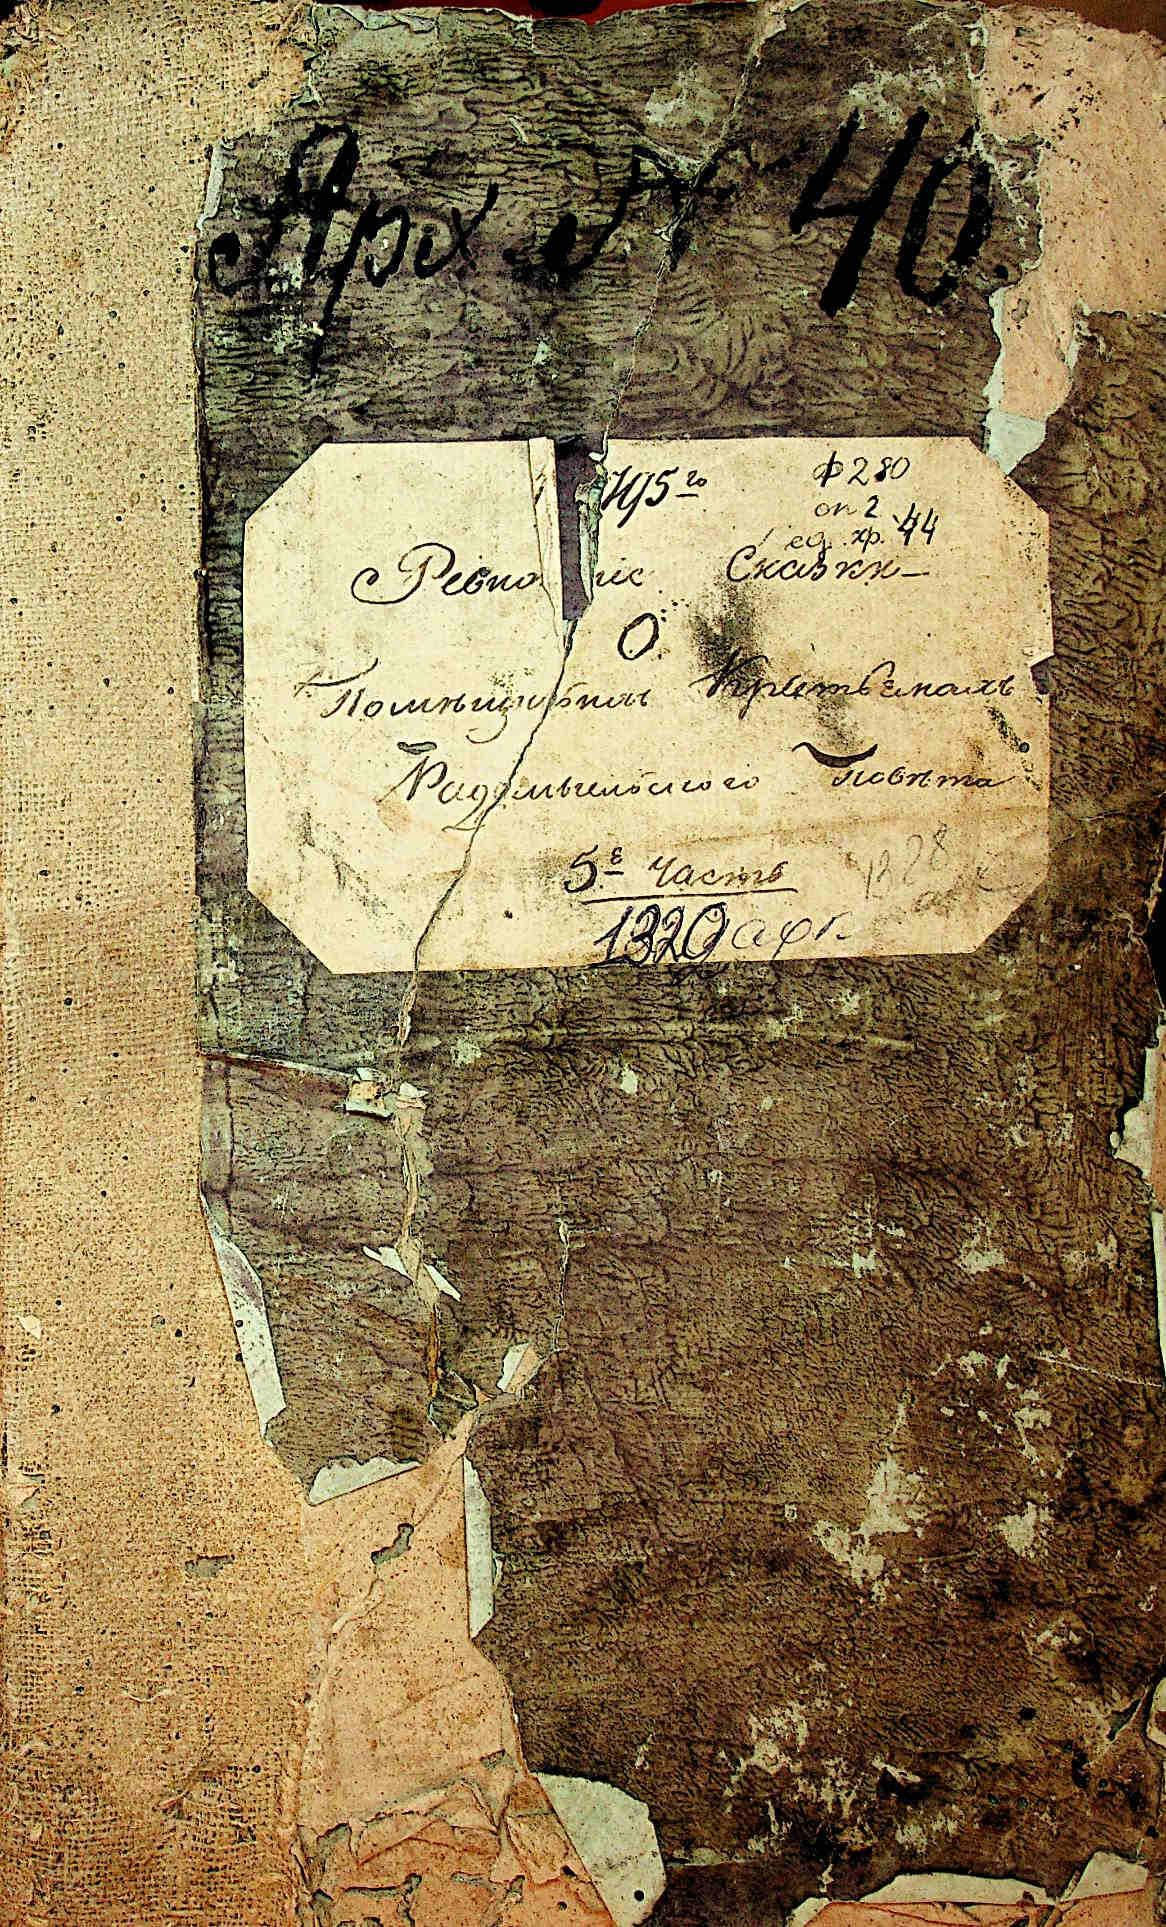 Арх. № 40.
795го
ф 280
оп 2
ед. хр. 44
Ревизские Сказки
О
Помѣщичьихъ Крестьянахъ
Радомыльского Повѣта
5.я часть
1320 арк.